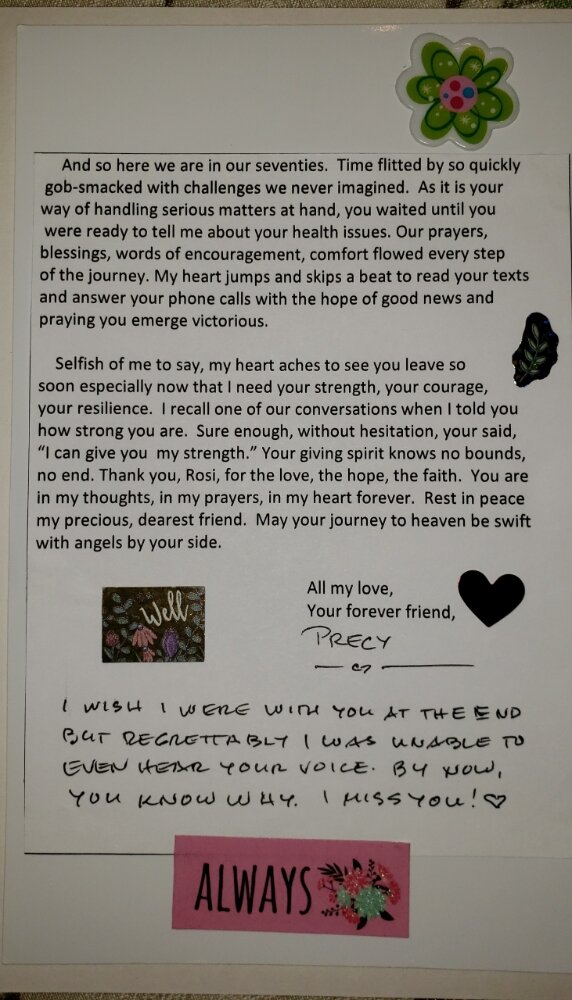 And so here we are in our seventies. Time flitted by so quickly
gob-smacked with challenges we never imagined. As it is your
way of handling serious matters at hand, you waited until you
were ready to tell me about your health issues. Our prayers,
blessings, words of encouragement, comfort flowed every step
of the journey. My heart jumps and skips a beat to read your texts
and answer your phone calls with the hope of good news and
praying you emerge victorious.
Selfish of me to say, my heart aches to see you leave so
soon especially now that I need your strength, your courage,
your resilience. I recall one of our conversations when I told you
how strong you are. Sure enough, without hesitation, your said,
“I can give you my strength.” Your giving spirit knows no bounds,
no end. Thank you, Rosi, for the love, the hope, the faith. You are
in my thoughts, in my prayers, in my heart forever. Rest in peace
my precious, dearest friend. May your journey to heaven be swift
with angels by your side.
Well
All my love,
Your forever friend,
PRECY
I WISH I WERE WITH YOU AT THE END
BUT REGRETTABLY I WAS UNABLE TO
EVEN HEAR YOUR VOICE. BY NOW,
YOU KNOW WHY. I MISS YOU! ♡
ALWAYS